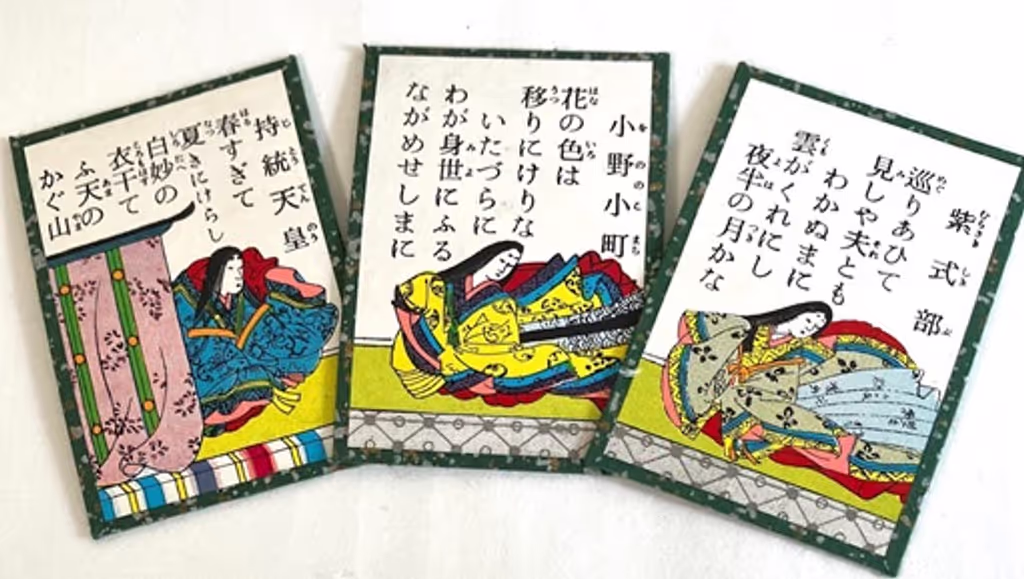 持統天皇
春すぎて
夏きにけらし
白妙の
衣干て
ふ天の
かぐ山
小野小町
花の色は
移りにけりな
いたづらに
わが身世にふる
ながめせしまに
紫式部
巡りあひて
見しや夫とも
わかぬまに
雲がくれにし
夜半の月かな